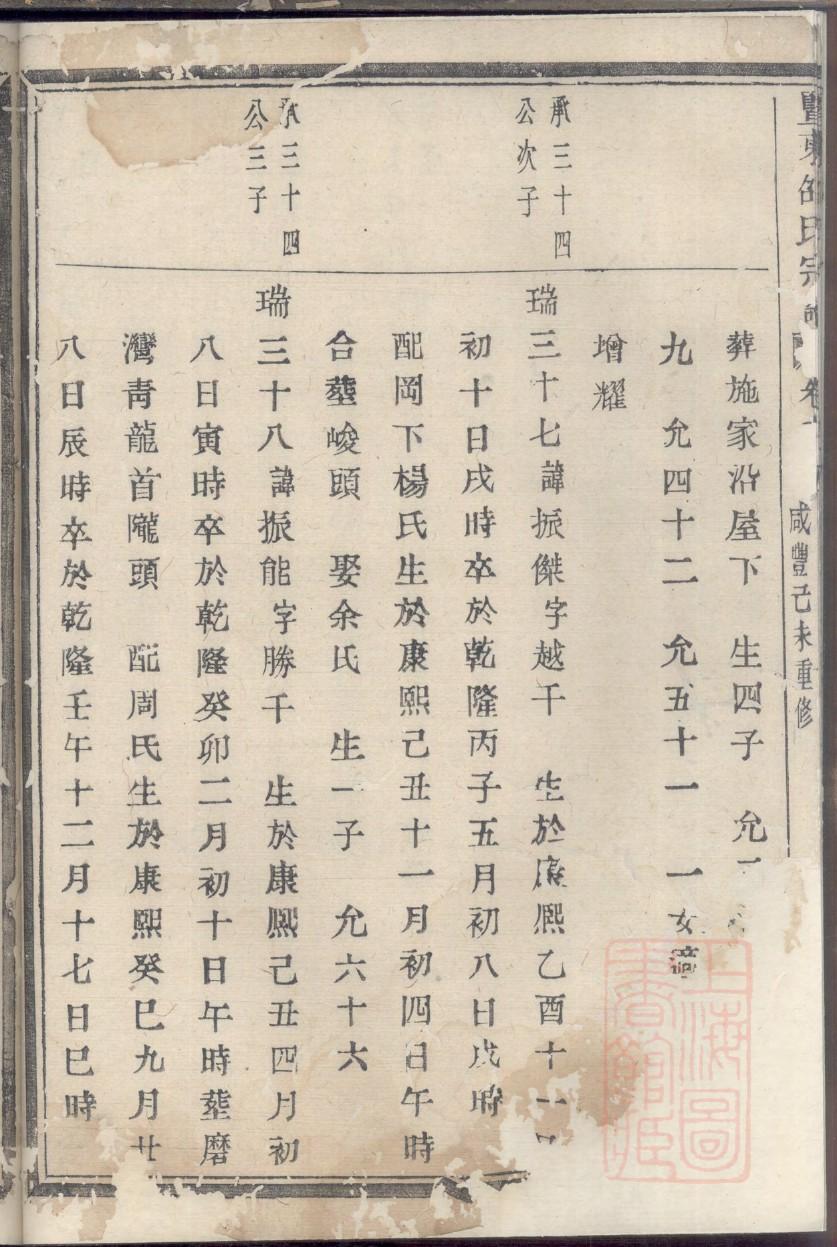 暨東
氏宗
卷
咸豐己未重修
葬施家沿屋下　生四子　允
九　允四十二　允五十一　一女適
增耀
承三十四
公次子
瑞三十七諱振傑字越千　生於康熙乙酉十一
初十日戌時卒於乾隆丙子五月初八日戌時
配岡下楊氏生於康熙己丑十一月初四日午時
合𦵏峻頭　娶余氏　生一子　允六十六
承三十四
公三子
瑞三十八諱振能字勝千　生於康熙己丑四月初
八日寅時卒於乾隆癸卯二月初十日午時𦵏磨
灣青龍首隴頭　配周氏生於康熙癸巳九月廿
八日辰時卒於乾隆壬午十二月十七日巳時
上海圖
書館